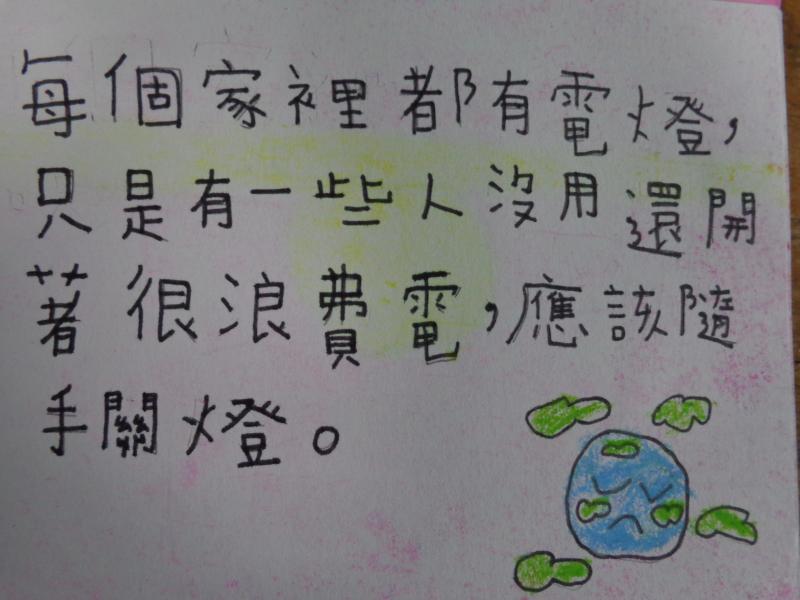 每個家裡都有電燈，
只是有一些人沒用還開
著很浪費電，應該隨
手關燈。